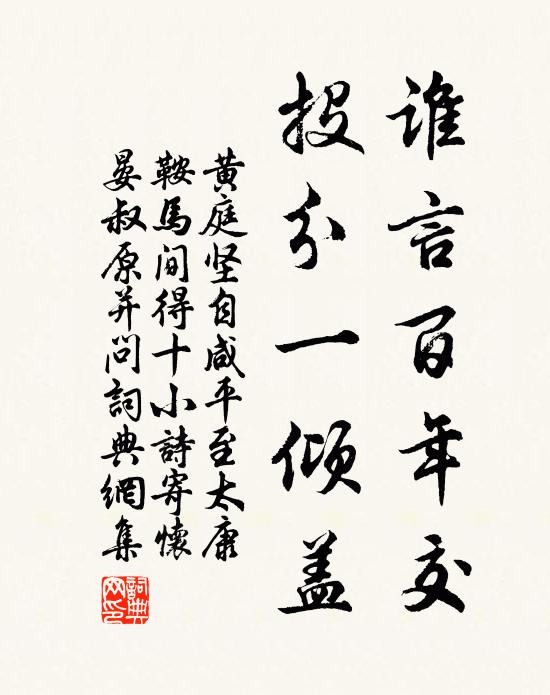 谁言百年交
投分一倾盖
黄庭坚自咸平至太康
鞍馬间得十小詩寄懷
晏叔原并问詞典網集
詞典
网印